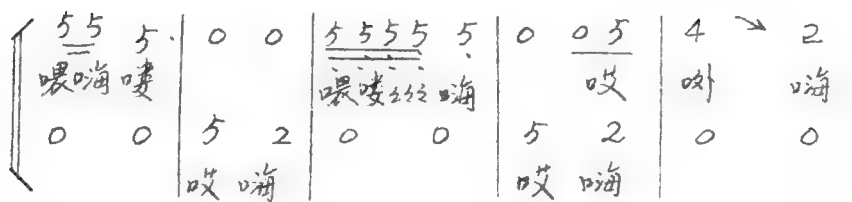 5 5 5· 0 0 5 5 5 5 5 0 0 5 4 ↘ 2
喂嗨喽 喂喽 嗨 哎 哟 嗨
0 0 5 2 0 0 5 2 0 0
哎 嗨 哎 嗨